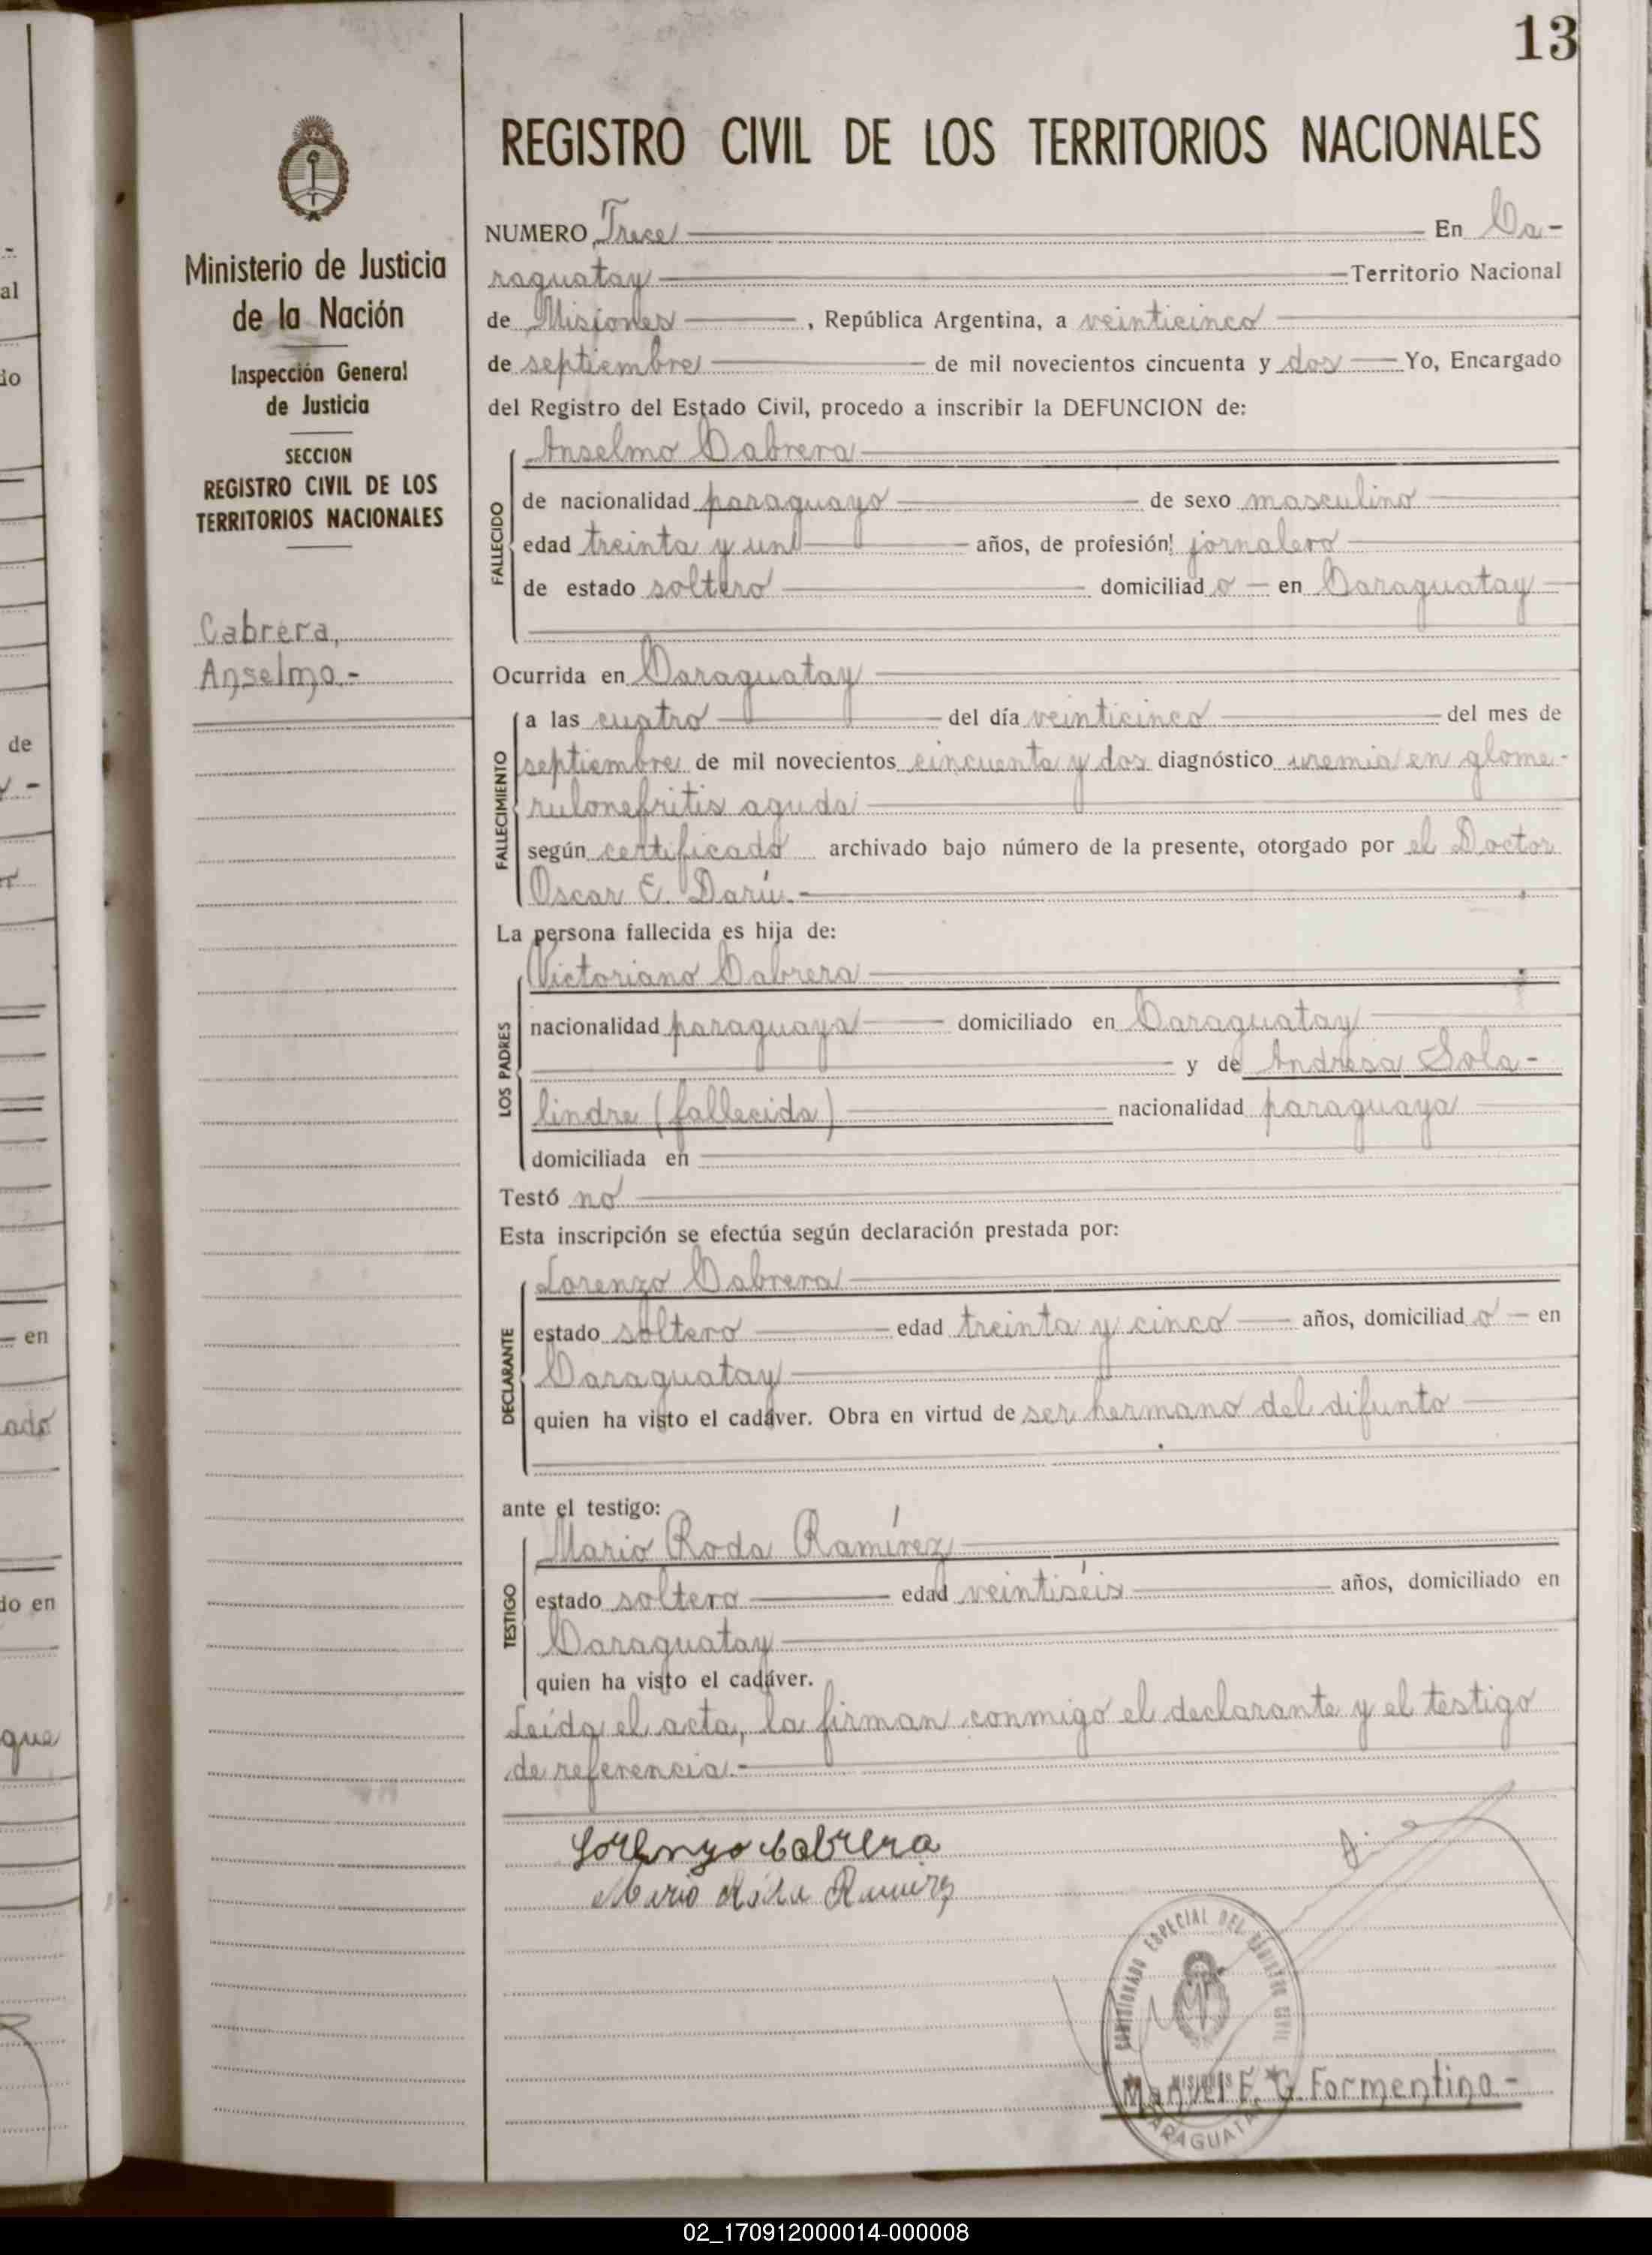 13
REGISTRO CIVIL DE LOS TERRITORIOS NACIONALES
Ministerio de Justicia
de la Nación
Inspección General
de Justicia
SECCION
REGISTRO CIVIL DE LOS
TERRITORIOS NACIONALES
Cabrera,
Anselmo.-
NUMERO Trece En Ca-
raguatay Territorio Nacional
de Misiones, República Argentina, a veinticinco
de septiembre de mil novecientos cincuenta y dos Yo, Encargado
del Registro del Estado Civil, procedo a inscribir la DEFUNCION de:
FALLECIDO
Anselmo Cabrera
de nacionalidad paraguayo de sexo masculino
edad treinta y un años, de profesión jornalero
de estado soltero domiciliado en Caraguatay
Ocurrida en Caraguatay
FALLECIMIENTO
a las cuatro del día veinticinco del mes de
septiembre de mil novecientos cincuenta y dos diagnóstico uremia en glome-
rulonefritis aguda
según certificado archivado bajo número de la presente, otorgado por el Doctor
Oscar E. Darú.-
La persona fallecida es hija de:
LOS PADRES
Victoriano Cabrera
nacionalidad paraguaya domiciliado en Caraguatay
y de Andresa Sola-
lindre (fallecida) nacionalidad paraguaya
domiciliada en
Testó no
Esta inscripción se efectúa según declaración prestada por:
DECLARANTE
Lorenzo Cabrera
estado soltero edad treinta y cinco años, domiciliado en
Caraguatay
quien ha visto el cadáver. Obra en virtud de ser hermano del difunto
ante el testigo:
TESTIGO
Mario Roda Ramírez
estado soltero edad veintiséis años, domiciliado en
Caraguatay
quien ha visto el cadáver.
Leída el acta, la firman conmigo el declarante y el testigo
de referencia.-
Lorenzo Cabrera
Mario Roda Ramirez
COMISIONADO ESPECIAL DEL REGISTRO CIVIL
MISIONES
CARAGUATAY
Manuel F. G. Formentino-
al
de
en
ado
do en
que
02_170912000014-000008